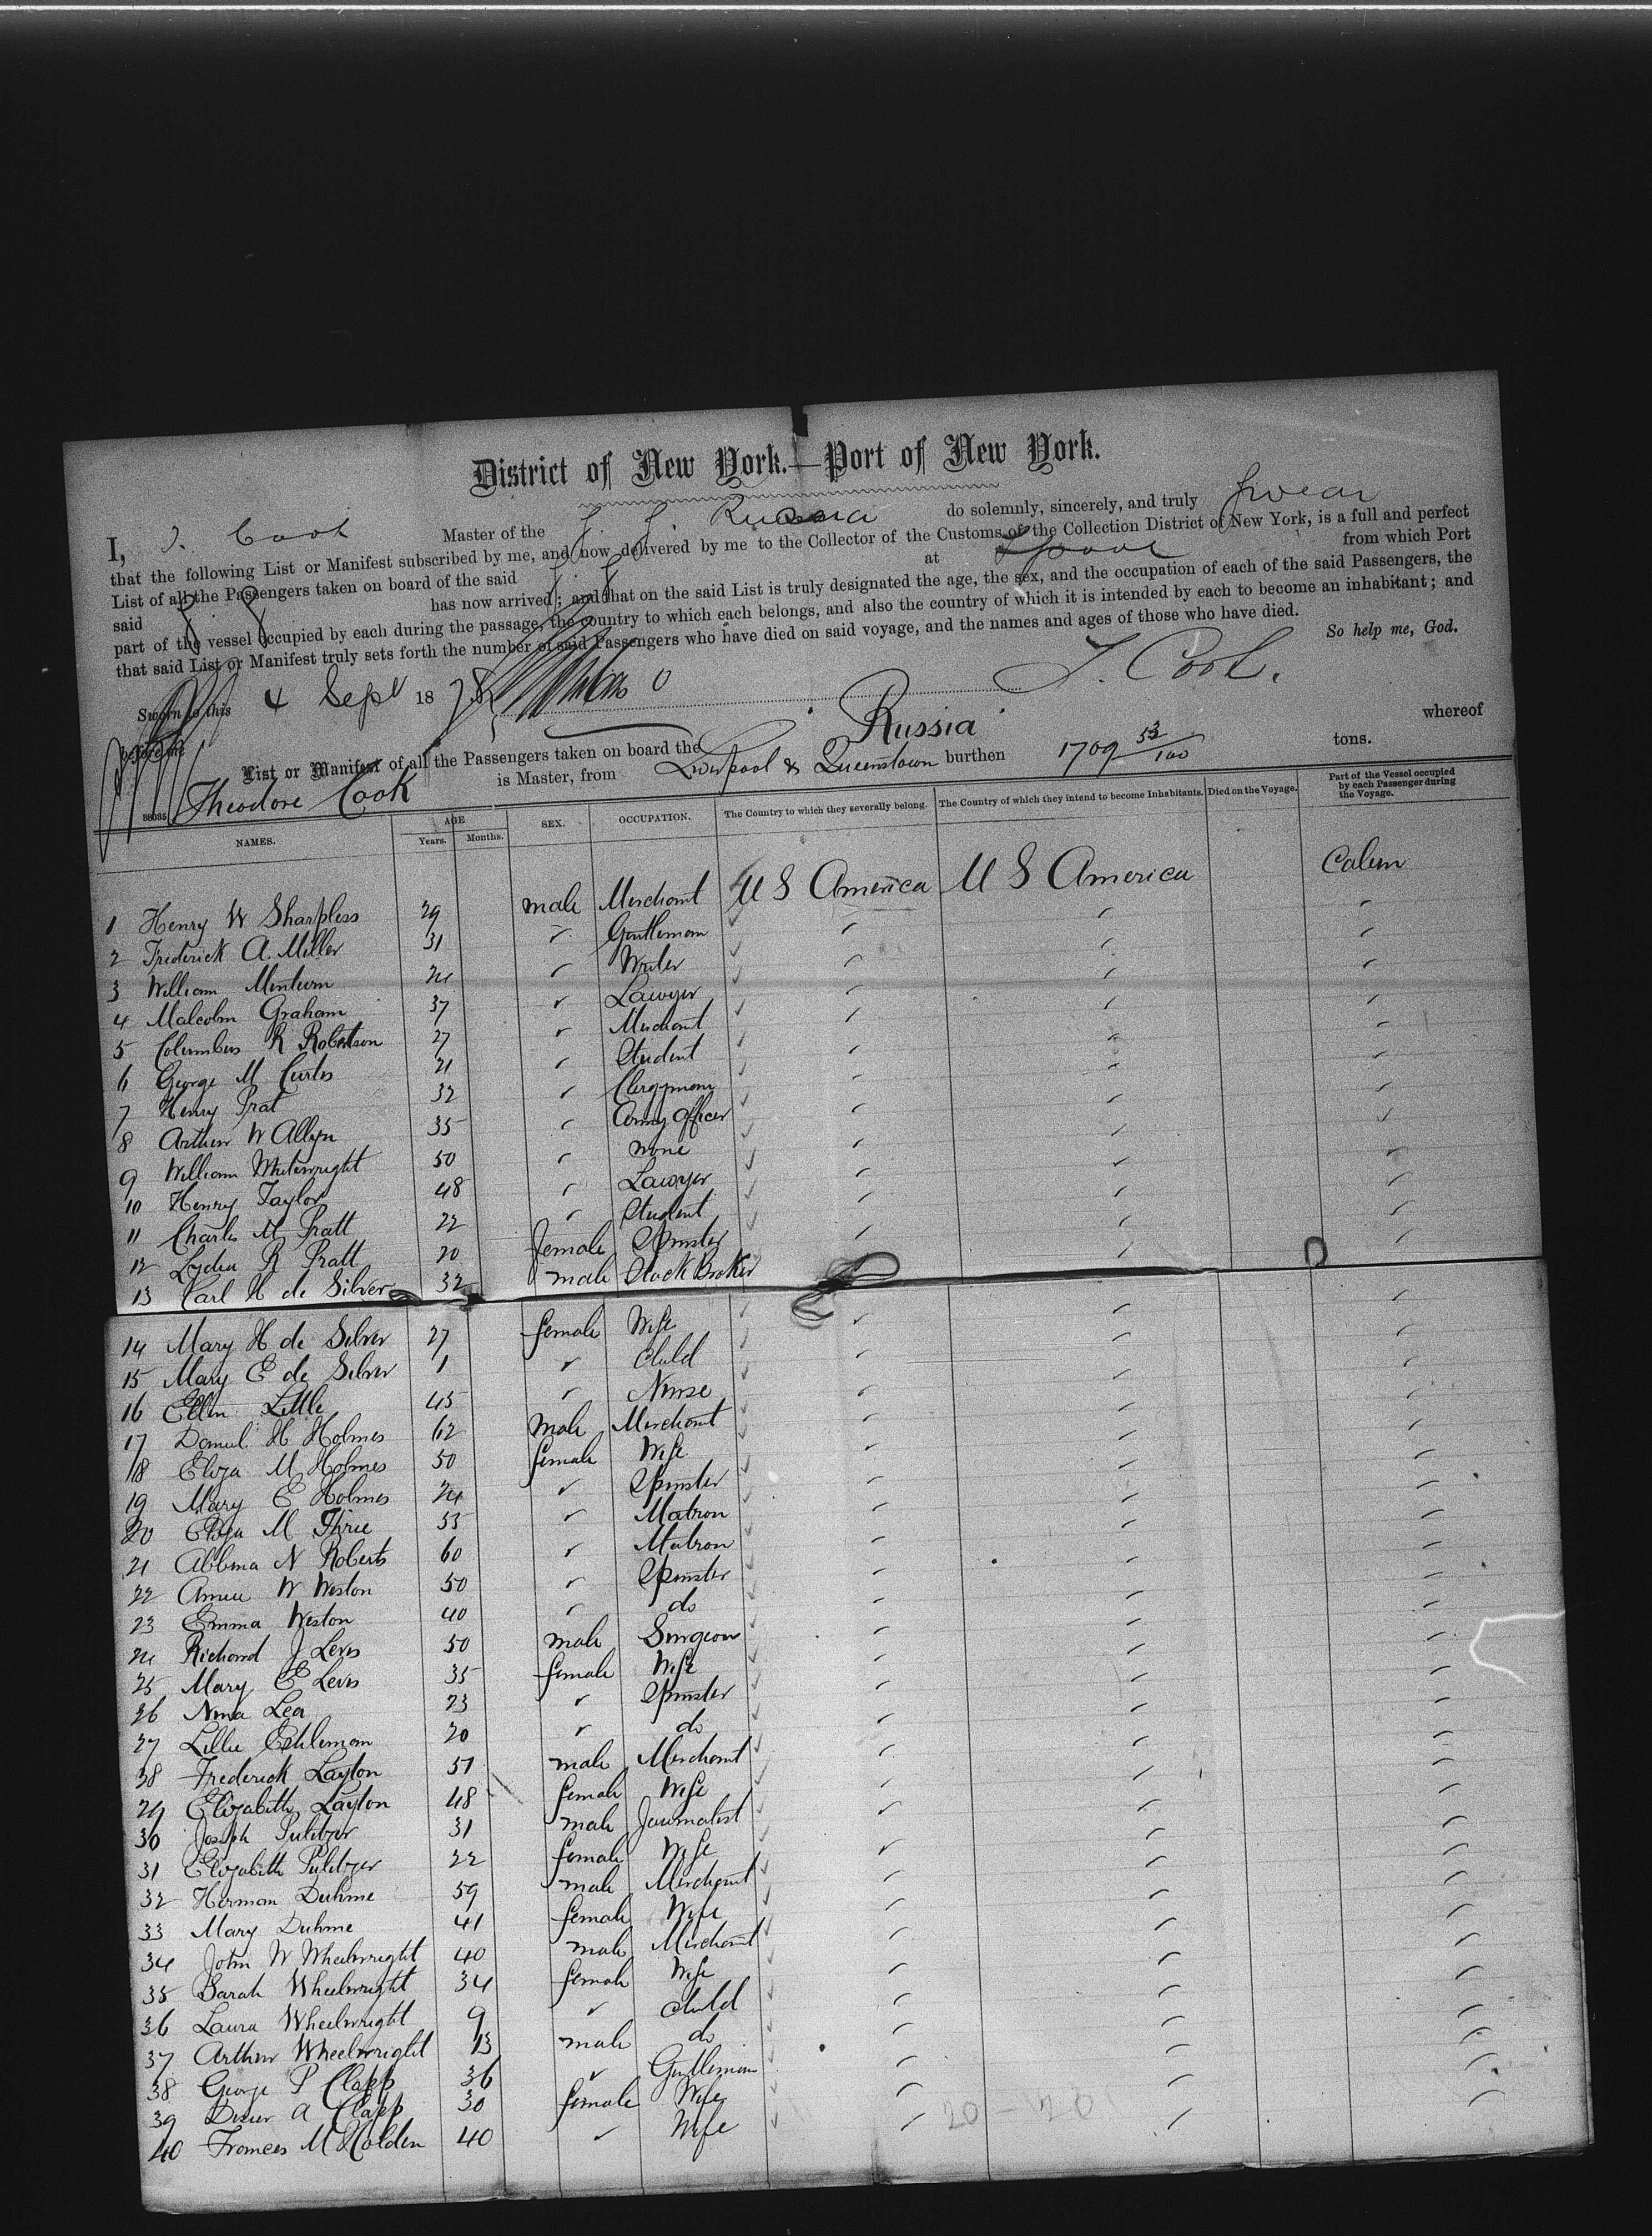 District of New York.—Port of New York.
I, T. Cook Master of the S. S. Russia do solemnly, sincerely, and truly swear
that the following List or Manifest subscribed by me, and now delivered by me to the Collector of the Customs of the Collection District of New York, is a full and perfect
List of all the Passengers taken on board of the said S. S. at Lpool from which Port
said S. S. has now arrived; and that on the said List is truly designated the age, the sex, and the occupation of each of the said Passengers, the
part of the vessel occupied by each during the passage, the country to which each belongs, and also the country of which it is intended by each to become an inhabitant; and
that said List or Manifest truly sets forth the number of said Passengers who have died on said voyage, and the names and ages of those who have died.
So help me, God.
Sworn to this 4 Sept 1878 T. Cook.
before me
List or Manifest of all the Passengers taken on board the Russia whereof
Theodore Cook is Master, from Liverpool & Queenstown burthen 1709 53/100 tons.
38035
NAMES. AGE Years. Months. SEX. OCCUPATION. The Country to which they severally belong. The Country of which they intend to become Inhabitants. Died on the Voyage. Part of the Vessel occupied by each Passenger during the Voyage.
1 Henry W Sharpless 29 male Merchant U S America U S America Cabin
2 Frederick A. Miller 31 " Gentleman
3 William Minturn 24 " Writer
4 Malcolm Graham 37 " Lawyer
5 Columbus R Robertson 27 " Merchant
6 George M Curtis 21 " Student
7 Henry Prat 32 " Clergyman
8 Arthur W Allyn 35 " Army Officer
9 William Wheelwright 50 " none
10 Henry Taylor 48 " Lawyer
11 Charles M Pratt 22 " Student
12 Lydia R Pratt 20 female Spinster
13 Carl H de Silver 32 male Stock Broker
14 Mary H de Silver 27 female Wife
15 Mary E de Silver 1 " Child
16 Ellen Little 45 " Nurse
17 Daniel H Holmes 62 male Merchant
18 Eliza M Holmes 50 female Wife
19 Mary E Holmes 24 " Spinster
20 Eliza M Three 55 " Matron
21 Abbina N Roberts 60 " Matron
22 W Weston 50 " Spinster
23 Emma Weston 40 " do
24 Richard J Levis 50 male Surgeon
25 Mary E Levis 35 female Wife
26 Nina Lea 23 " Spinster
27 Lillie Eshleman 20 " do
28 Frederick Layton 51 male Merchant
29 Elizabeth Layton 48 female Wife
30 Joseph Pulitzer 31 male Journalist
31 Elizabeth Pulitzer 22 female Wife
32 Herman Duhme 59 male Merchant
33 Mary Duhme 41 female Wife
34 John W Wheelwright 40 male Merchant
35 Sarah Wheelwright 34 female Wife
36 Laura Wheelwright 9 " Child
37 Arthur Wheelwright 13 male do
38 George P Clapp 36 " Gentleman
39 A Clapp 30 female Wife
40 Frances M Holden 40 " Wife